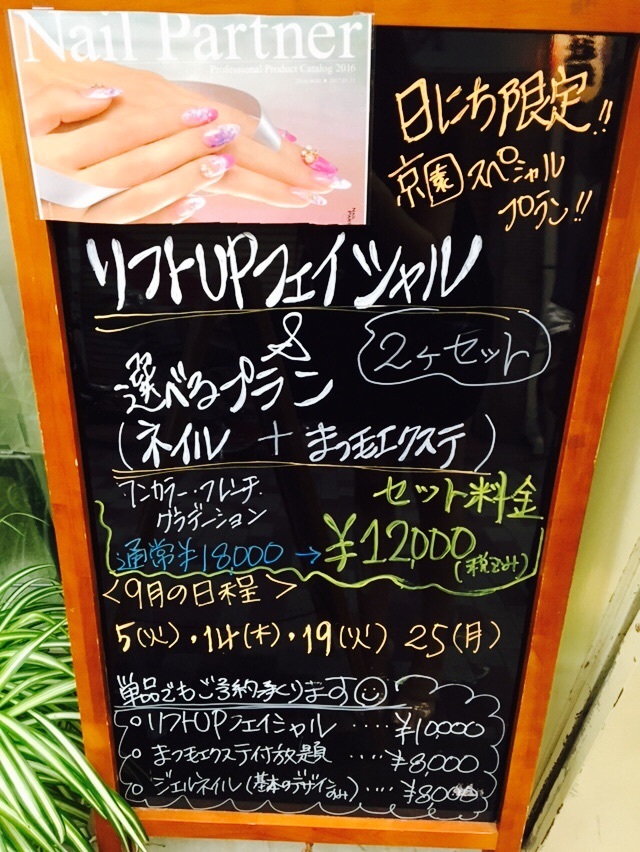 Nail Partner
Professional Product Catalog 2016
日にち限定!!
京園スペシャル
プラン!!
リフトUPフェイシャル
&
2ヶセット
選べるプラン
(ネイル + まつ毛エクステ)
ワンカラー・フレンチ・
グラデーション
セット料金
通常¥18000→¥12,000(税込み)
<9月の日程>
5(火)・14(木)・19(火) 25(月)
単品でもご予約承ります
○リフトUPフェイシャル ····¥10,000
○まつ毛エクステ付放題 ····¥8,000
○ジェルネイル(基本のデザインのみ)····¥8,000